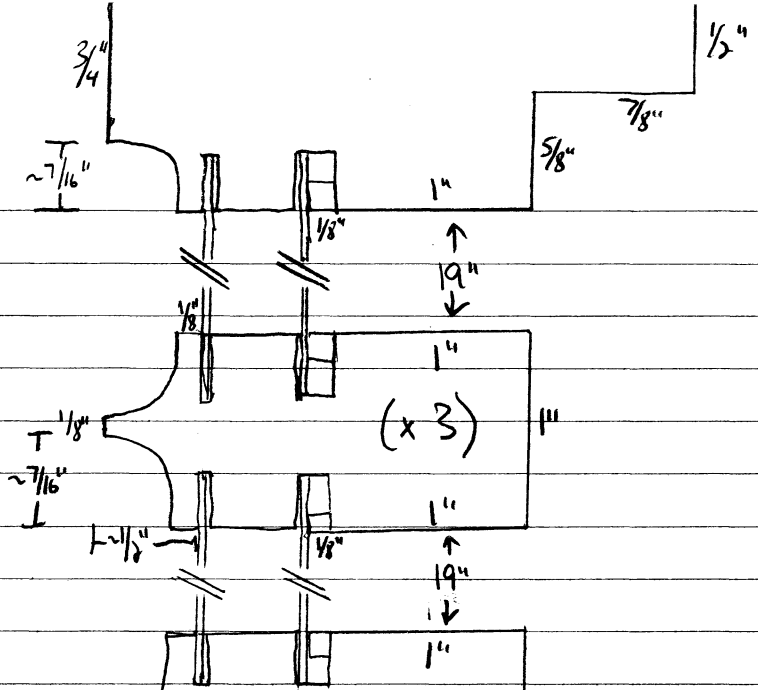 3/4"
1/2"
7/8"
5/8"
~7/16"
1"
1/8"
19"
1/8"
1"
(x 3)
1"
1/8"
~7/16"
1"
~1/2"
1/8"
19"
1"